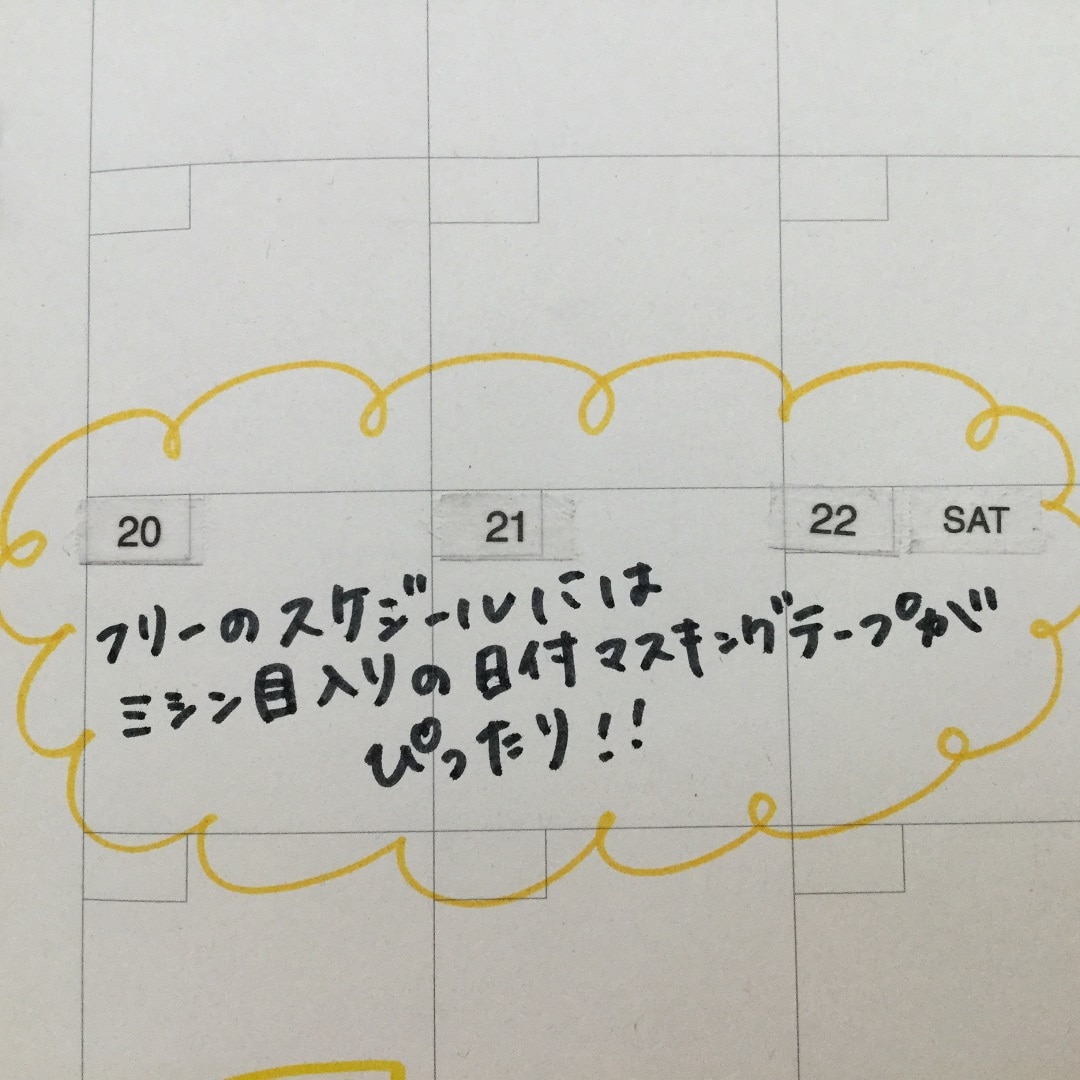 20 21 22 SAT
フリーのスケジールには
ミシン目入りの日付マスキングテープが
ぴったり!!